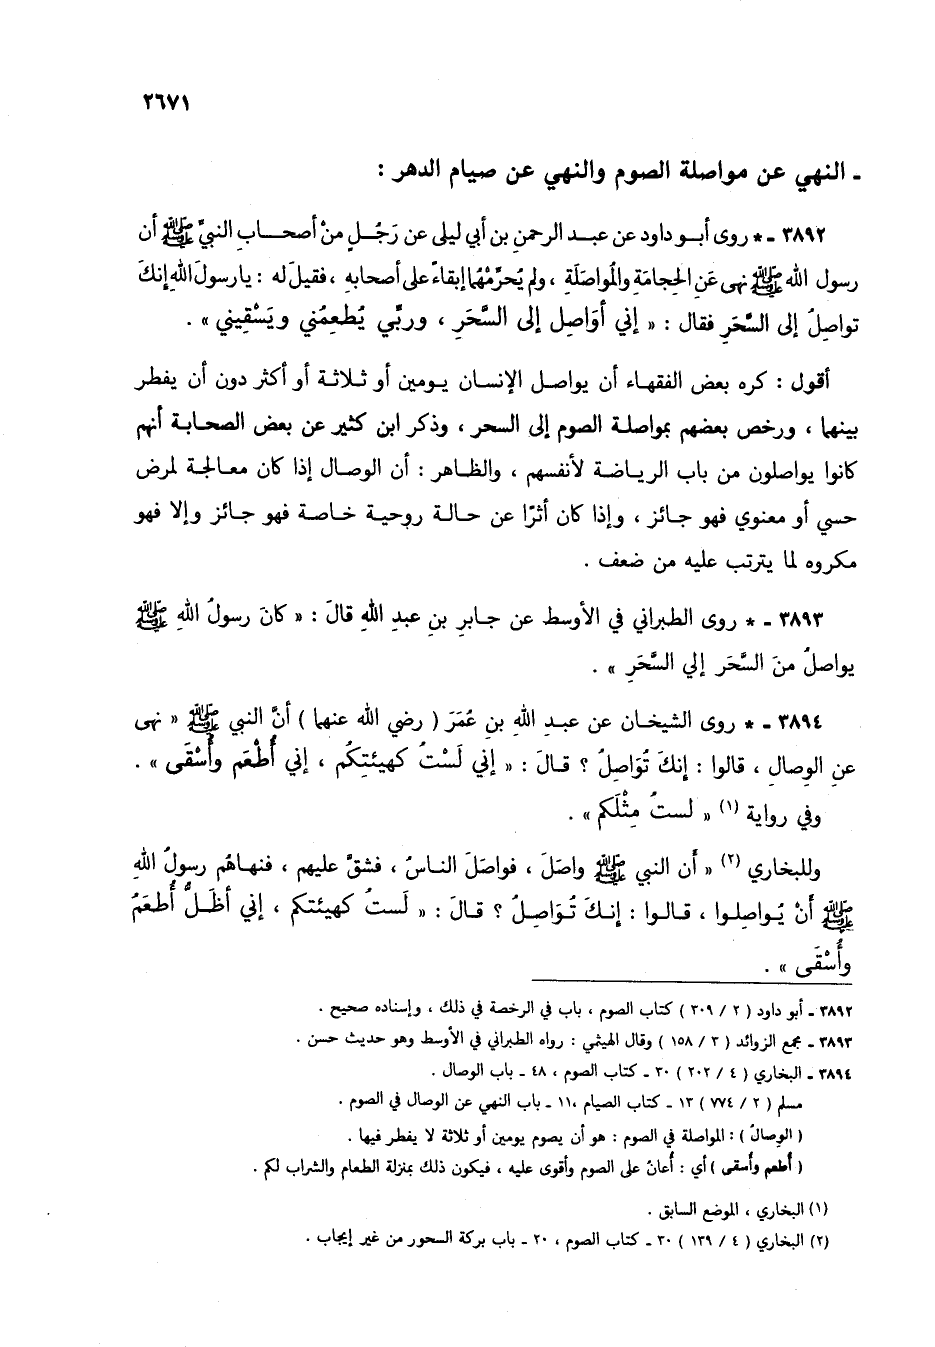 ٢٦٧١
ـ النهي عن مواصلة الصوم والنهي عن صيام الدهر :
٣٨٩٢ ـ * روى أبـو داود عن عبـد الرحمنِ بن أبي ليلى عن رَجُـلٍ منْ أصحـاب النبيِّ ﷺ أن
رسول الله ﷺ نهى عَنِ الحِجامَةِ والمُواصَلَةِ ، ولم يُحرِّمْهُما إبقاءً على أصحابه ، فقيلَ له : يارسولَ اللهِ إنكَ
تواصلُ إلى السَّحَرِ فقال : « إني أوَاصِل إلى السَّحَرِ ، وربِّي يُطعِمُني ويَسْقِيني » .
أقول : كره بعض الفقهاء أن يواصل الإنسان يـومين أو ثـلاثـة أو أكثر دون أن يفطر
بينها ، ورخص بعضهم بمواصلـة الصوم إلى السحر ، وذكر ابن كثير عن بعض الصحـابـة أنهم
كانوا يواصلون من باب الريـاضـة لأنفسهم ، والظاهر : أن الوصال إذا كان معـالجـة لمرض
حسي أو معنوي فهو جـائز ، وإذا كان أثرًا عن حـالـة روحيـة خـاصـة فهو جـائز وإلا فهو
مكروه لما يترتب عليه من ضعف .
٣٨٩٣ ـ * روى الطبراني في الأوسط عن جـابرِ بنِ عبدِ اللهِ قالَ : « كانَ رسولُ اللهِ ﷺ
يواصلُ منَ السَّحَر إلي السَّحَرِ » .
٣٨٩٤ ـ * روى الشيخـان عن عبـدِ اللهِ بنِ عُمَرَ ( رضي الله عنهما ) أنَّ النبي ﷺ « نهى
عنِ الوِصالِ ، قالوا : إنكَ تُوَاصِلُ ؟ قـالَ : « إني لَسْتُ كهيئتِكُم ، إني أُطْعَم وأُسْقَى » .
وفي رواية (١) « لستُ مِثْلَكم » .
وللبخاري (٢) « أن النبي ﷺ واصَلَ ، فواصَلَ النـاسُ ، فشقَّ عليهم ، فنهـاهُم رسولُ اللهِ
ﷺ أنْ يُـواصِلـوا ، قـالـوا : إنـكَ تُـوَاصِـلُ ؟ قـالَ : « لَستُ كهيئتكم ، إني أظَـلُّ أُطعَمُ
وأُسْقَى » .
٣٨٩٢ ـ أبو داود ( ٢ / ٣٠٩ ) كتاب الصوم ، باب في الرخصة في ذلك ، وإسناده صحيح .
٣٨٩٣ ـ مجمع الزوائد ( ٣ / ١٥٨ ) وقال الهيثمي : رواه الطبراني في الأوسط وهو حديث حسن .
٣٨٩٤ ـ البخاري ( ٤ / ٢٠٢ ) ٣٠ ـ كتاب الصوم ، ٤٨ ـ باب الوصال .
مسلم ( ٢ / ٧٧٤ ) ١٣ ـ كتاب الصيام ، ١١ ـ باب النهي عن الوصال في الصوم .
( الوِصالُ ) : المواصلة في الصوم : هو أن يصوم يومين أو ثلاثة لا يفطر فيها .
( أُطعم وأُسقى ) أي : أُعانُ على الصوم وأقوى عليه ، فيكون ذلك بمنزلة الطعام والشراب لكم .
(١) البخاري ، الموضع السابق .
(٢) البخاري ( ٤ / ١٣٩ ) ٣٠ ـ كتاب الصوم ، ٢٠ ـ باب بركة السحور من غير إيجاب .